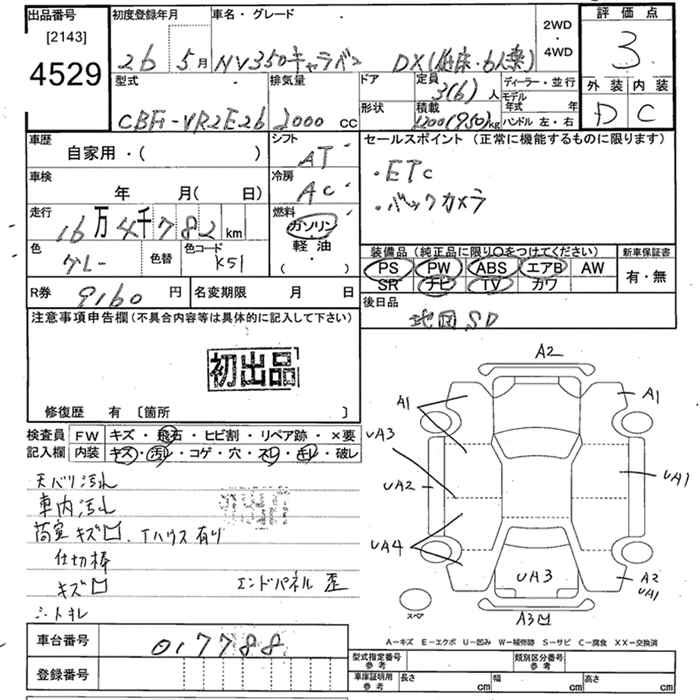 出品番号 初度登録年月 車名・グレード 2WD ・ 4WD 評価点
[2143]
4529 26 5月 NV350キャラバン DX(低床・6人乗) 3
型式 排気量 ドア 定員 ディーラー・並行 外装 内装
3(6)人 モデル年式 年
CBF-VR2E26 2000 cc 形状 積載 1200(950)kg ハンドル 左・右 D C
車歴 シフト セールスポイント(正常に機能するものに限ります)
自家用・( ) AT
車検 冷房 ・ETC
年 月( 日) AC ・バックカメラ
走行 燃料
16万4千782km ガソリン
色 色替 色コード 軽油 装備品(純正品に限り〇をつけてください) 新車保証書
グレー K51 ( ・ ) PS PW ABS エアB AW 有・無
SR ナビ TV カワ
R券 9160 円 名変期限 月 日 後日品
注意事項申告欄(不具合内容等は具体的に記入して下さい) 地図SD
初出品
修復歴 有 〔箇所 〕
検査員 FW キズ・飛石・ヒビ割・リペア跡・×要
記入欄 内装 キズ・汚レ・コゲ・穴・スレ・キレ・破レ
天バリ汚れ
車内汚れ
荷室キズ凹 .Tハウス有り
仕切棒
キズ凹 エンドパネル歪
シートキレ
A2
A1 A1
UA3
UA2 UA1
UA4
UA3 A2
UA1
スペア A3凹
A-キズ E-エクボ U-凹み W-補修跡 S-サビ C-腐食 XX-交換済
車台番号 017788
登録番号
型式指定番号 参考 類別区分番号 参考
車庫証明用 参考 長さ cm 幅 cm 高さ cm